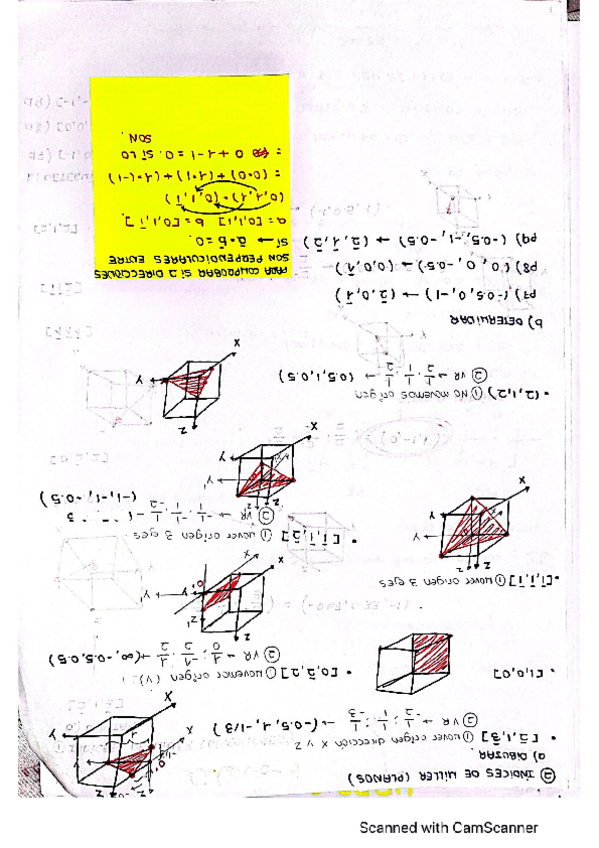 ② INDICES DE MILLER (PLANOS)
a) DIBUJAR
• [2̄,1,3̄] ① mover origen dirección x y z
② VR → 1/-2 ; 1/1 ; 1/-3 → (-0.5, 1, -1/3)
• [1,0,0]
• [0,2̄,2] ① movemos origen (y)
② VR → 1/0 ; -1/2 ; 1/2 → (∞, -0.5, 0.5)
• [1̄,1̄,1̄] ① mover origen 3 ejes
• [1̄,1̄,2̄] ① mover origen 3 ejes
② VR → 1/-1 ; 1/-1 ; 1/-2
(-1, -1, -0.5)
• (2,1,2) ① NO movemos origen
② VR → 1/2 ; 1/1 ; 1/2 → (0.5, 1, 0.5)
b) DETERMINAR
P7) (-0.5, 0, -1) → (2̄, 0, 1̄)
P8) (0, 0, -0.5) → (0,0,2̄)
P9) (-0.5, -1, -0.5) → (2̄, 1̄, 2̄)
PARA COMPROBAR SI 2 DIRECCIONES
SON PERPENDICULARES ENTRE
SÍ → a̅·b̅=0.
a = [0,1,1] b = [0,1,1̄]
(0,1,1)·(0,1,1̄)
= (0·0) + (1·1) + (1·(-1))
= 0 + 1 - 1 = 0. SÍ LO
SON.
X
Y
Z
Scanned with CamScanner